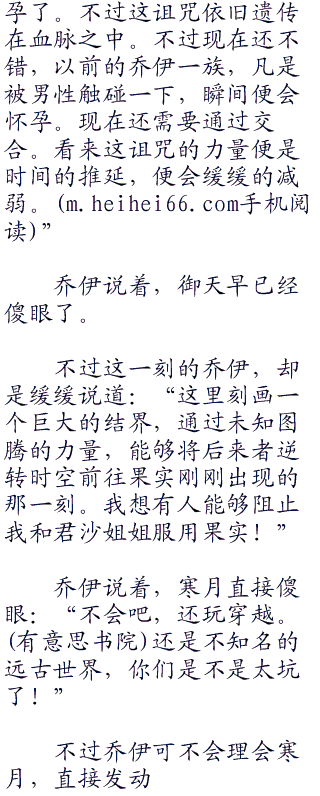 孕了。不过这诅咒依旧遗传
在血脉之中。不过现在还不
错，以前的乔伊一族，凡是
被男性触碰一下，瞬间便会
怀孕。现在还需要通过交
合。看来这诅咒的力量便是
时间的推延，便会缓缓的减
弱。(m.heihei66.com手机阅
读)”
乔伊说着，御天早已经
傻眼了。
不过这一刻的乔伊，却
是缓缓说道：“这里刻画一
个巨大的结界，通过未知图
腾的力量，能够将后来者逆
转时空前往果实刚刚出现的
那一刻。我想有人能够阻止
我和君沙姐姐服用果实！”
乔伊说着，寒月直接傻
眼：“不会吧，还玩穿越。
(有意思书院)还是不知名的
远古世界，你们是不是太坑
了！”
不过乔伊可不会理会寒
月，直接发动